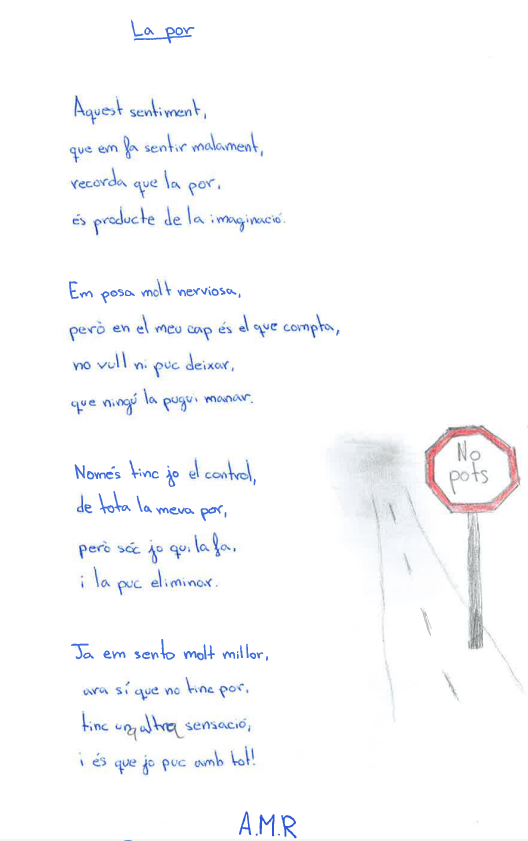 La por
Aquest sentiment,
que em fa sentir malament,
recorda que la por,
és producte de la imaginació.
Em posa molt nerviosa,
però en el meu cap és el que compta,
no vull ni puc deixar,
que ningú la pugui manar.
Només tinc jo el control,
de tota la meva por,
però sóc jo qui la fa,
i la puc eliminar.
No
pots
Ja em sento molt millor,
ara sí que no tinc por,
tinc una altra sensació,
i és que jo puc amb tot!
A.M.R